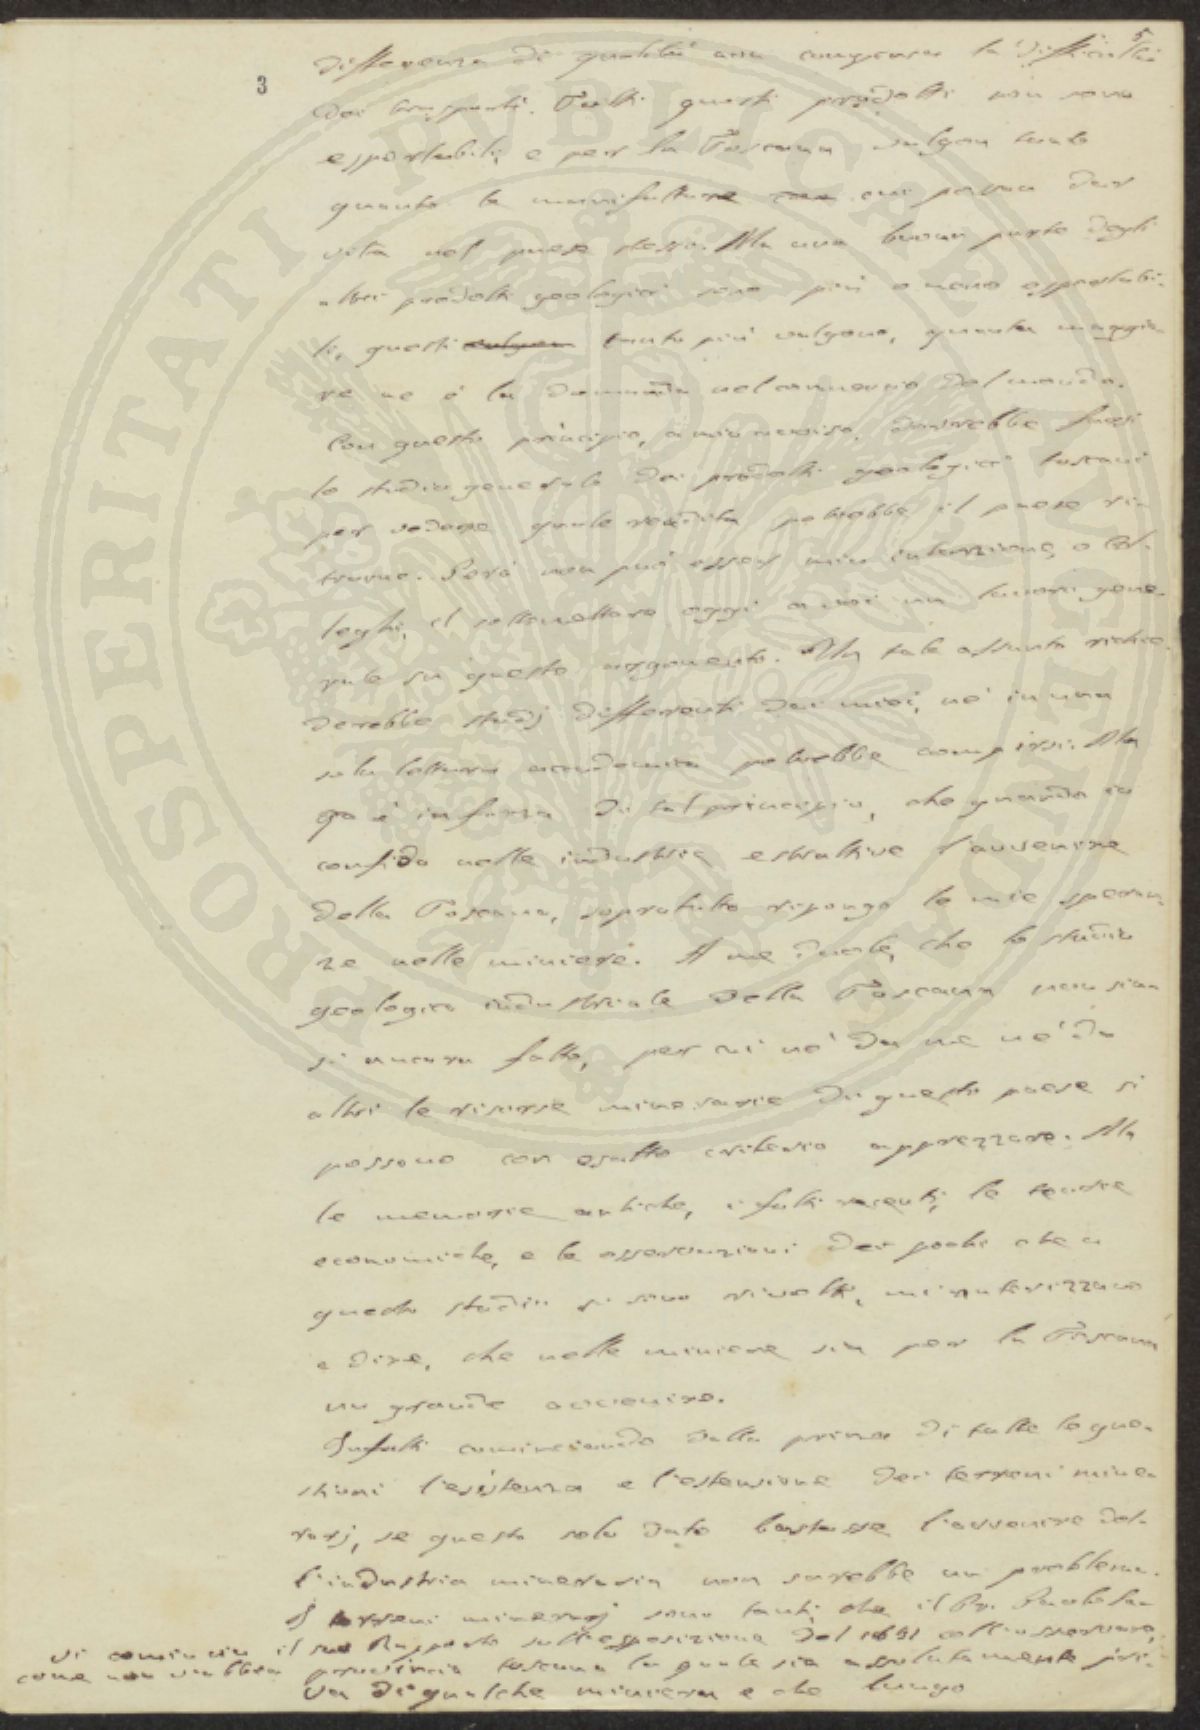 5
3
differenza di qualità non compensa la difficoltà
dei trasporti. Tutti questi prodotti non sono
esportabili, e per la Toscana valgon tanto
quanto le manifatture cui posson dar
vita nel paese stesso. Ma una buona parte degli
altri prodotti geologici sono più o meno esportabi-
li, questi valgon tanto più valgono, quanto maggio-
re ne è la domanda nel commercio del mondo.
Con questo principio, a mio avviso, dovrebbe farsi
lo studio generale dei prodotti geologici toscani
per vedere quale rendita potrebbe il paese ri-
trarne. Però non può esser mia intenzione, o Col-
leghi, il sottomettere oggi a voi un lavoro gene-
rale su questo argomento. Un tale assunto richie-
derebbe studj differenti dai miei, nè in una
sola lettura accademica potrebbe compirsi. Ma
è in forza di tal principio, che quando io
confido nelle industrie estrattive l'avvenire
della Toscana, sopratutto ripongo le mie speran-
ze nelle miniere. A me duole, che lo studio
geologico industriale della Toscana non sia
si ancora fatto, per cui nè da me nè da
altri le risorse minerarie di questo paese si
possono con esatto criterio apprezzare. Ma
le memorie antiche, i fatti recenti, le teorie
economiche, e le osservazioni dei pochi che a
questo studio si sono rivolti, mi autorizzano
a dire, che nelle miniere sia per la Toscana
un grande avvenire.
Infatti cominciando dalla prima di tutte le que-
stioni l'esistenza e l'estensione dei terreni mine-
rarj, se questo solo dato bastasse l'avvenire del-
l'industria mineraria non sarebbe un problema.
I terreni minerarj sono tanti, che il Pr.
si comincia il suo Rapporto sull'esposizione del coll'osservare,
come non vi abbia provincia toscana la quale sia assolutamente pri-
va di qualche miniera e che lungo